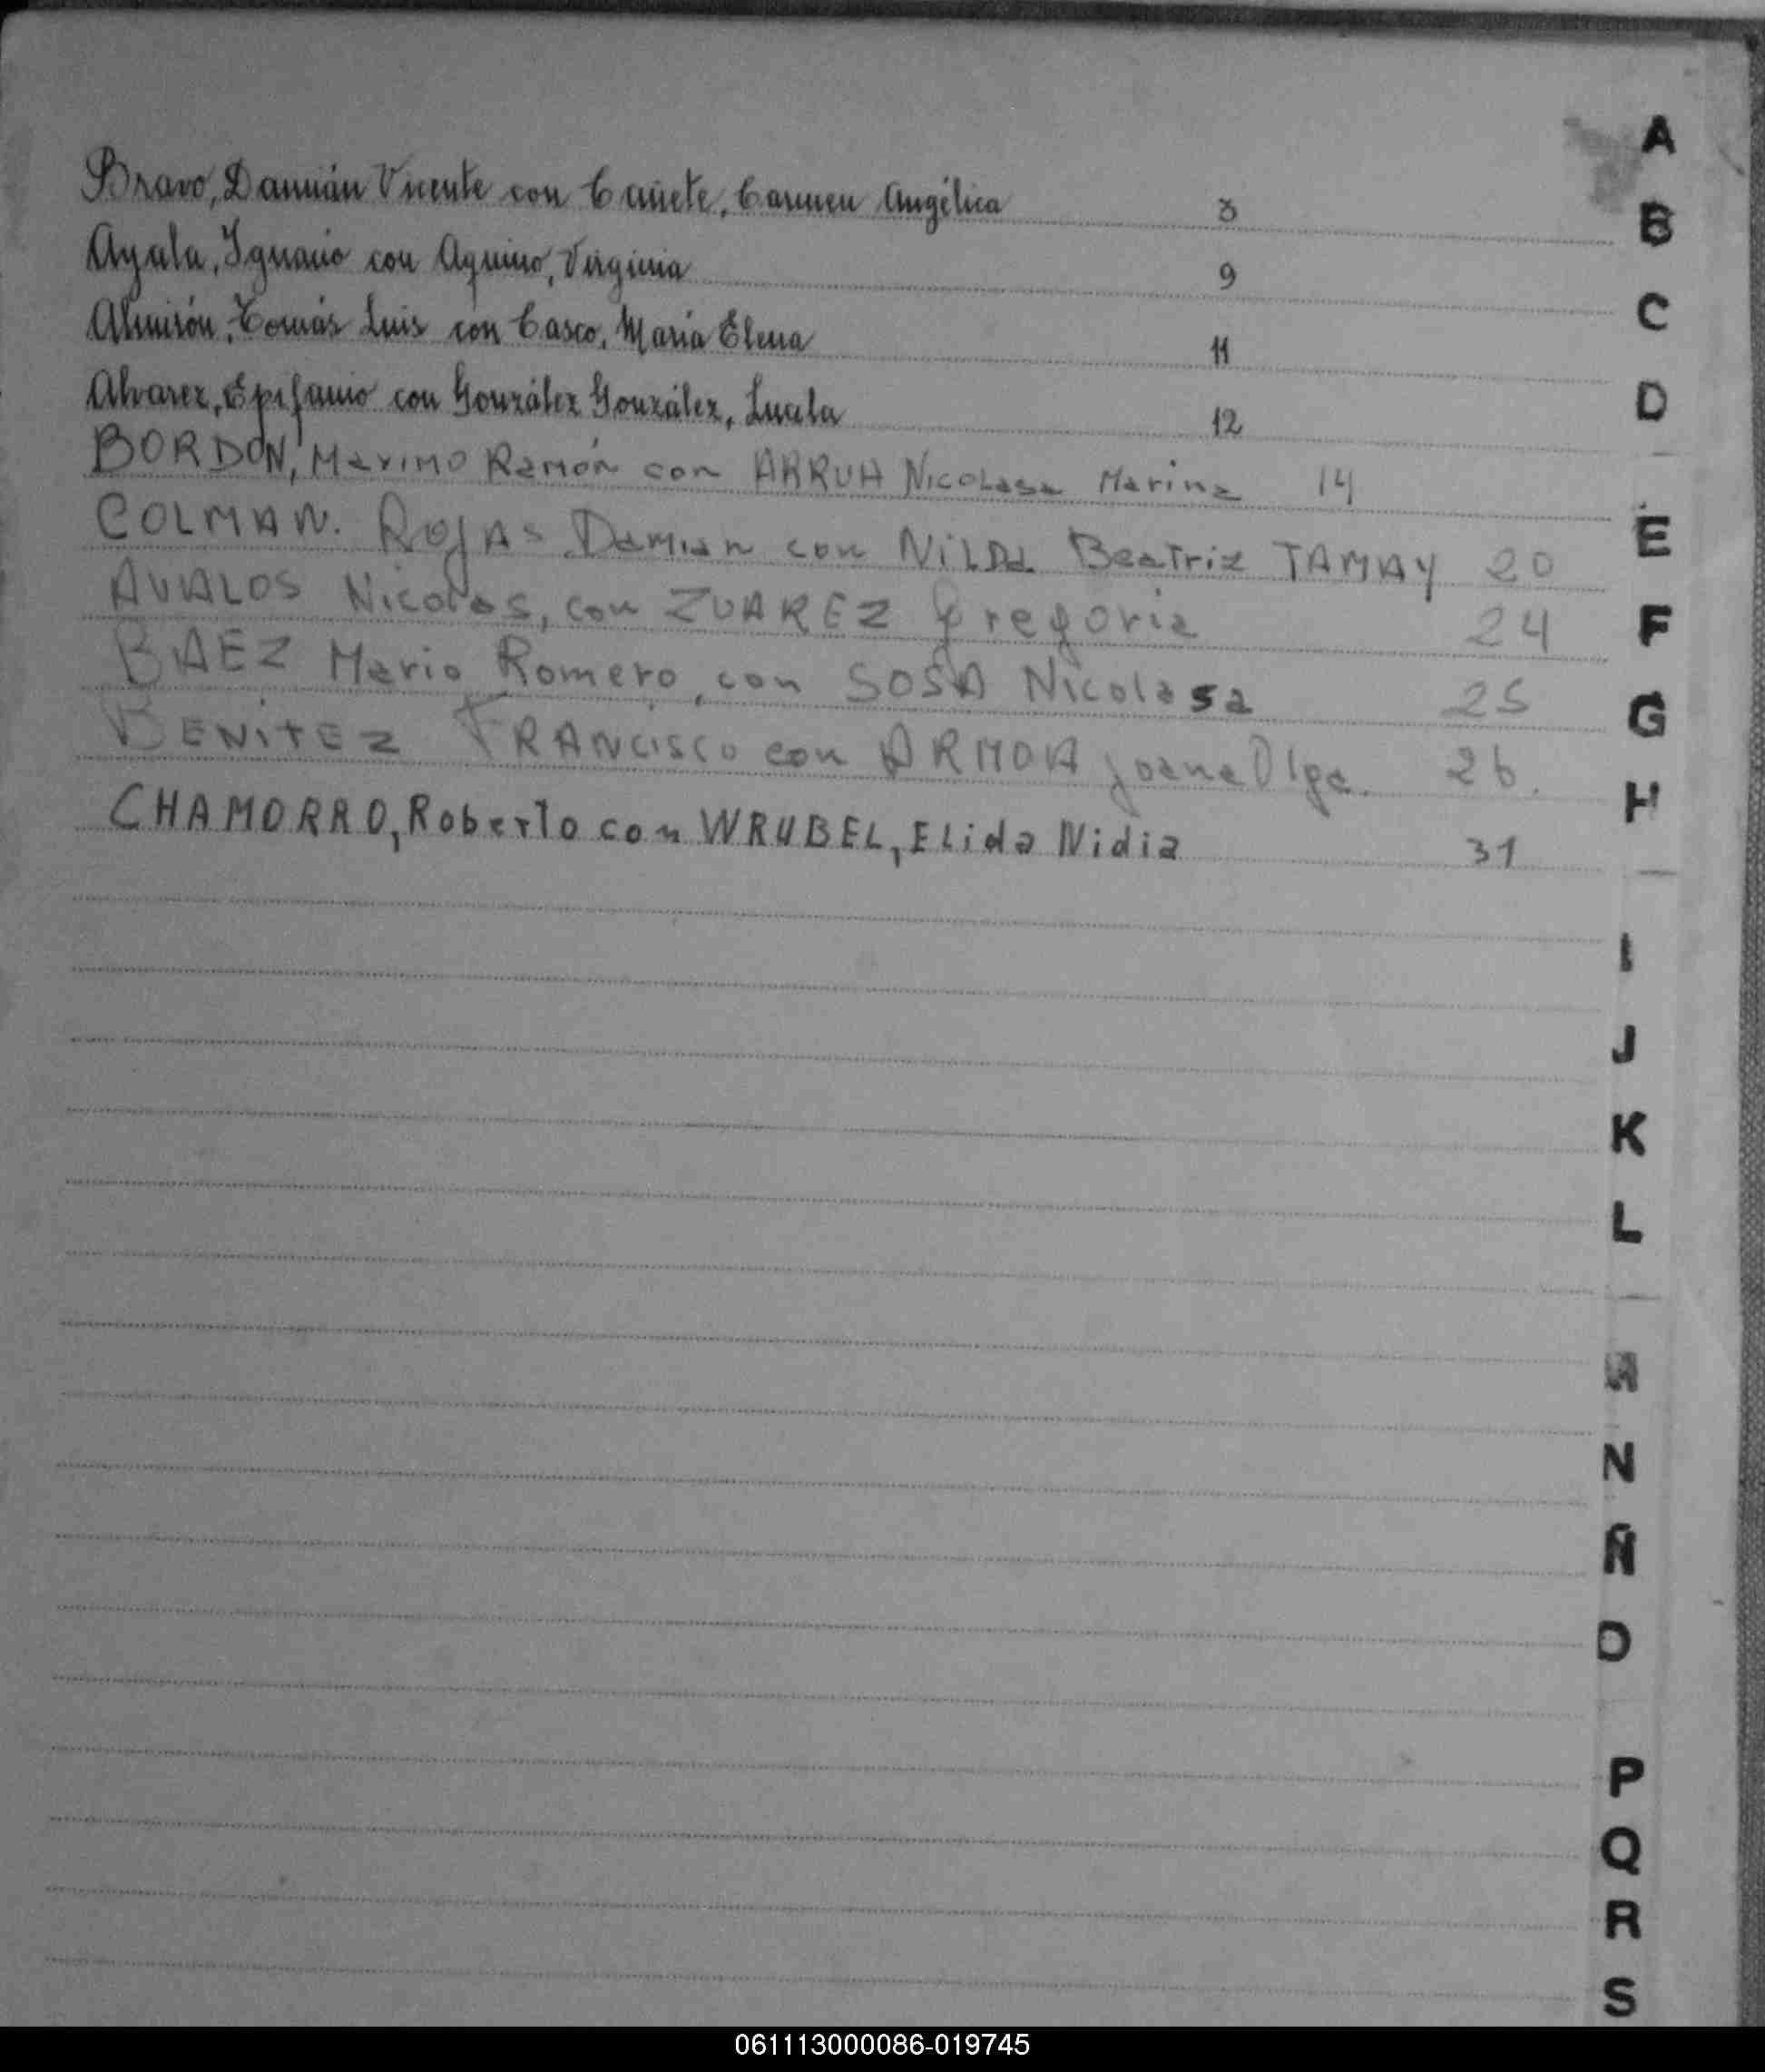 Bravo, Damián Vicente con Cañete, Carmen Angélica 3
Ayala, Ignacio con Aquino, Virginia 9
Almirón, Tomás Luis con Casco, María Elena 11
Alvarez, Epifanio con González González, Lucila 12
BORDON, Maximo Ramón con ARRUA Nicolasa Marina 14
COLMAN. ROJAS Damian con NILDA Beatriz TAMAY 20
AVALOS Nicolas, con ZUAREZ Gregoria 24
BAEZ Mario Romero, con SOSA Nicolasa 25
BENITEZ FRANCISCO con ARMOA Olga. 26.
CHAMORRO, Roberto con WRUBEL, ELida Nidia 31
A
B
C
D
E
F
G
H
I
J
K
L
N
Ñ
O
P
Q
R
S
061113000086-019745